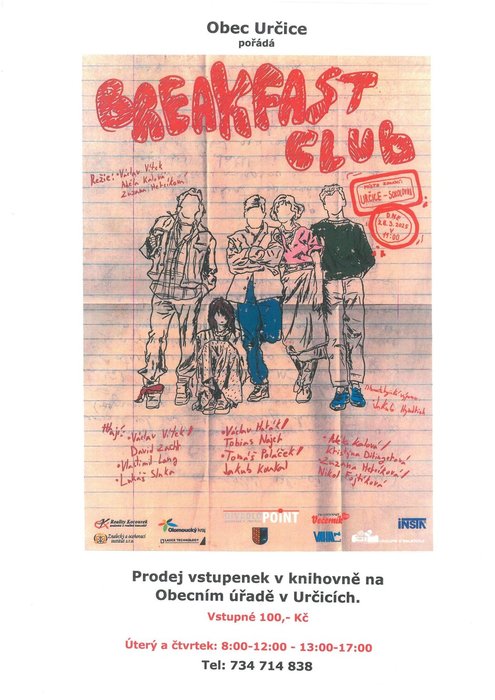 Obec Určice
pořádá
BREAKFAST
CLUB
Režie: Václav Vítek
Adéla Kalová
Zuzana Hetsíková
MÍSTO KONÁNÍ
URČICE - SOKOLOVNA
DNE
28.3.2025
V
19:00
Hrají: Václav Vítek
David Zacht
Vlastimil Lang
Lukáš Slaka
Václav Haták
Tobias Najet
Tomáš Poláček
Jakub Kunkal
Adéla Kalová
Kristýna Ditingetová
Zuzana Hetsíková
Nikol Fojtíková
Jakub Hyndtich
Reality Kocourek
Olomoucký kraj
LASER TECHNOLOGY
DIVADLO POINT
Večerník
INSTA
Prodej vstupenek v knihovně na
Obecním úřadě v Určicích.
Vstupné 100,- Kč
Úterý a čtvrtek: 8:00-12:00 - 13:00-17:00
Tel: 734 714 838